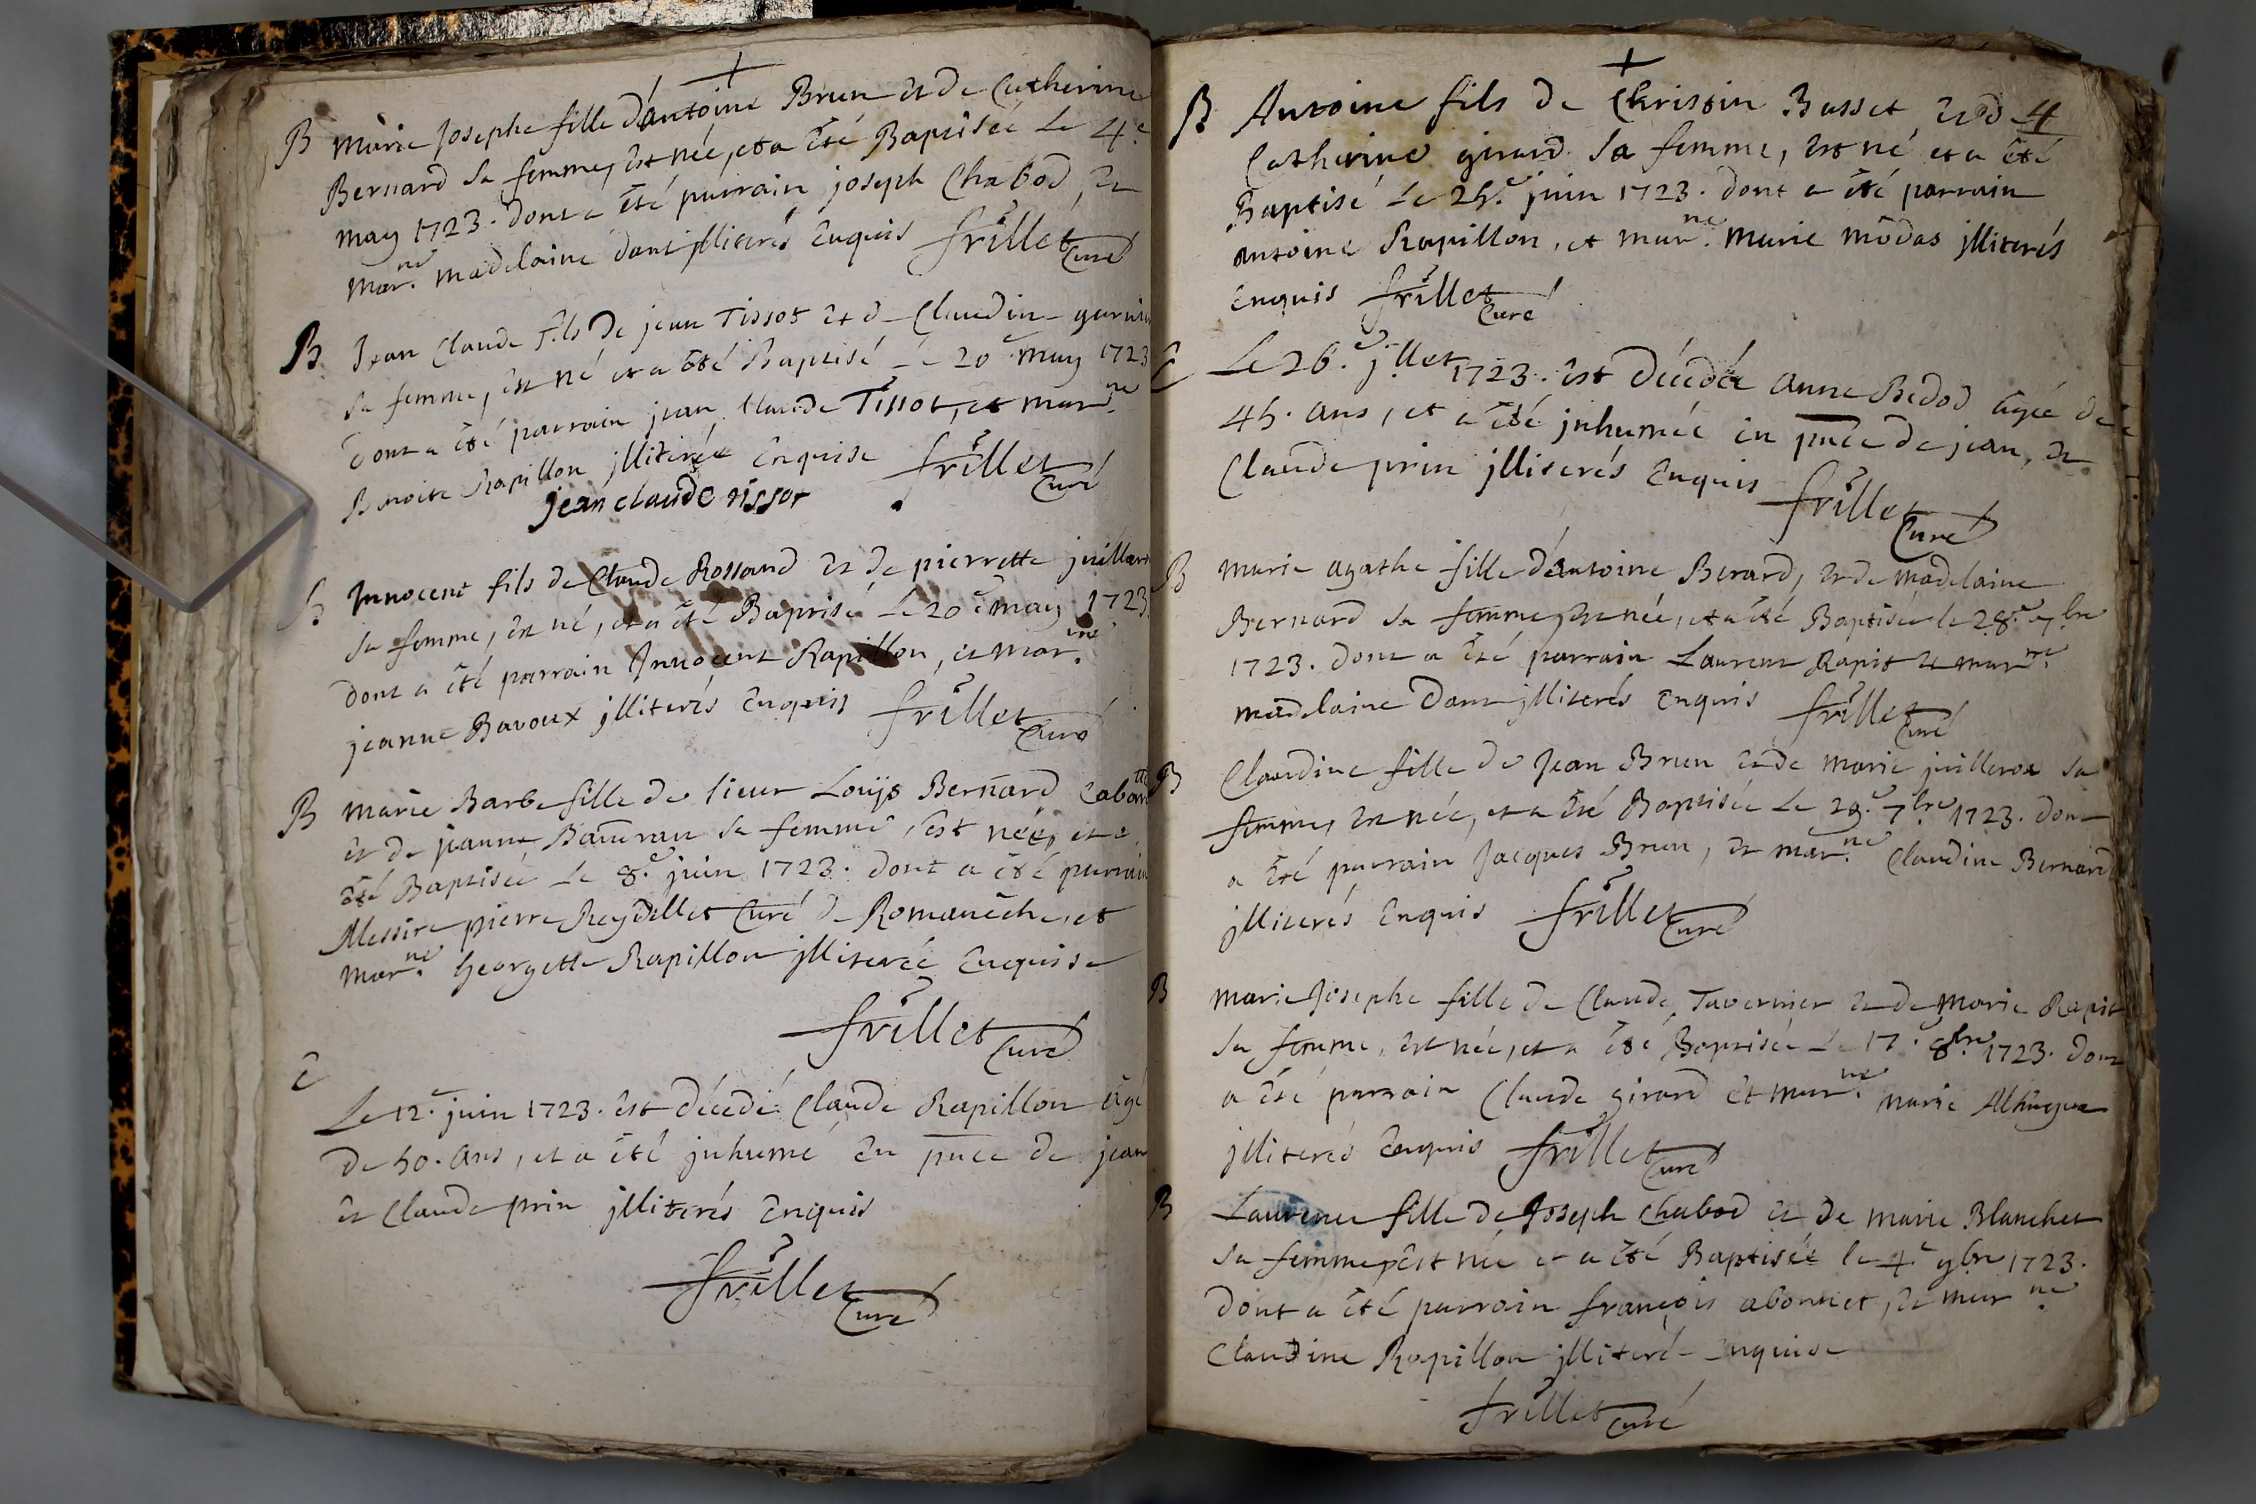 +
B Marie Josephe fille d'antoine Brun et de Catherine
Bernard sa femme, est née, et a été Baptisée le 4.e
may 1723. dont a été parrain joseph Chabod, et
mar.ne madelaine dant jlliterés Enquis frillet
Curé
B Jean Claude fils de jean Tissot et de Claudine
sa femme, est né et a été Baptisé le 20.e may 1723
dont a été parrain jean Claude Tissot, et mar.ne
Benoite Rapillon jlliterée Enquise frillet
jean claude tissot Curé
B Jnnocent fils de Claude Rossand et de pierrette juillard
sa femme, est né, et a été Baptisé le 20.e may 1723.
dont a été parrain Jnnocent Rapillon, et mar.ne
jeanne Bavoux jlliterés Enquis frillet
Curé
B Marie Barbe fille de sieur Louijs Bernard
et de jeanne sa femme, est née, et a
été Baptisée le 8.e juin 1723. dont a été parrain
Messire pierre Reydellet Curé de Romanêche, et
mar.ne Georgette Rapillon jlliterée Enquise
frillet
Curé
E
Le 12.e juin 1723. est décedé Claude Rapillon âgé
de 50. ans, et a été jnhumé En pnce de jean
et Claude prin jlliterés Enquis
frillet
Curé
+
B Antoine fils de Christin Basset et d 4
Catherine girard sa femme, est né et a été
Baptisé le 25.e juin 1723. dont a été parrain
antoine Rapillon, et mar.ne Marie môdas jlliterés
Enquis frillet
Curé
E Le 26.e j.llet 1723. est décédée anne Bedod âgée de
45. ans, et a été jnhumée En pnce de jean, et
Claude prin jlliterés Enquis frillet
Curé
B Marie agathe fille d'antoine Berard, et de madelaine
Bernard sa femme, est née, et a été Baptisée le 28.e 7bre
1723. dont a été parrain Laurent Rapit et mar.ne
madelaine dant jlliterés Enquis frillet
Curé
B Claudine fille de Jean Brun et de marie juilleron sa
femme, est née, et a été Baptisée le 29.e 7bre 1723. dont
a été parrain Jacques Brun, et mar.ne Claudine Bernard
jlliterés Enquis frillet
Curé
B Marie Josephe fille de Claude Tavernier et de Marie Rapit
sa femme, est née, et a été Baptisée le 17.e 8bre 1723. dont
a été parrain Claude girard et mar.ne marie
jlliterés Enquis frillet
Curé
B Laurence fille de Joseph Chabod et de marie Blanchet
sa femme, est née et a été Baptisée le 4.e 9bre 1723.
dont a été parrain françois abonnet, et mar.ne
Claudine Rapillon jlliteré Enquise
frillet
Curé